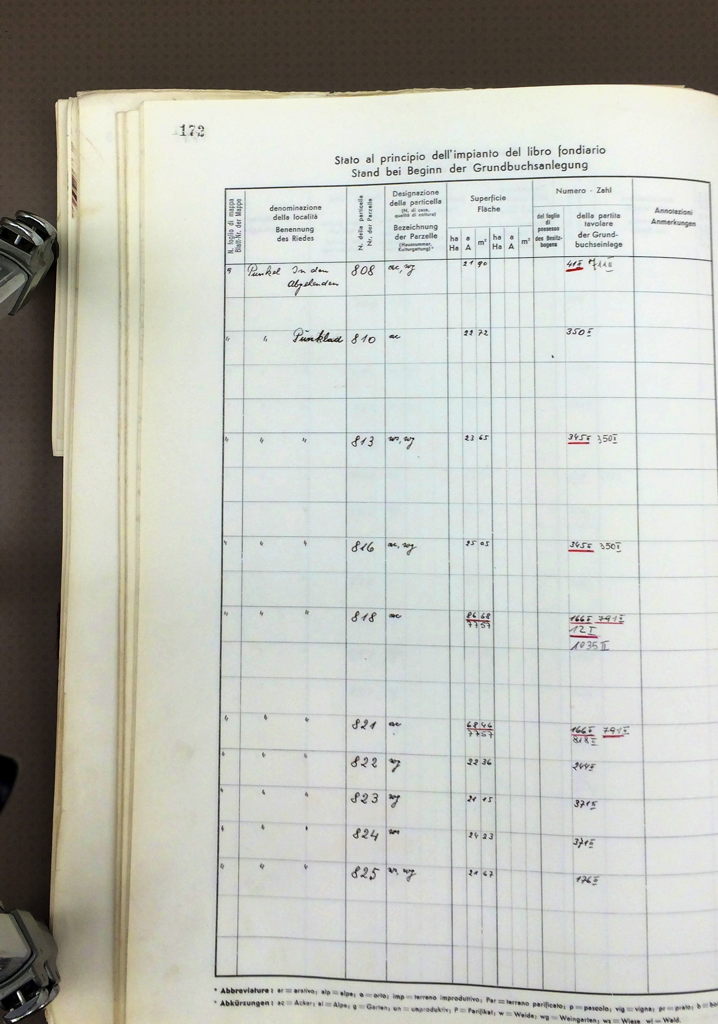 172
Stato al principio dell'impianto del libro fondiario
Stand bei Beginn der Grundbuchsanlegung
N. foglio di mappa
Blatt-Nr. der Mappe
denominazione
della località
Benennung
des Riedes
N. della particella
Nr. der Parzelle
Designazione
della particella
(N. di casa,
qualità di coltura)
Bezeichnung
der Parzelle
(Hausnummer,
Kulturgattung)*
Superficie
Fläche
ha a m² ha a m²
Ha A Ha A
Numero - Zahl
del foglio
di
possesso
des Besitz-
bogens
della partita
tavolare
der Grund-
buchseinlage
Annotazioni
Anmerkungen
9 Punkel In den 808 ac, wg 21 90 41 II 711 II
" " Punklad 810 ac 22 72 350 II
" " " 813 23 65 345 II 350 II
" " " 816 ac, wg 25 05 345 II 350 II
" " " 818 ac 86 68 166 II 791 II
77 57 12 I
1035 II
" " " 821 ac 68 46 166 II 791 II
77 57 818 II
" " " 822 wg 22 36 244 II
" " " 823 wg 21 15 371 II
" " " 824 24 23 371 II
" " " 825 21 67 176 II
* Abbreviature: ar = arativo; alp = alpe; o = orto; imp = terreno improduttivo; Par = terreno parificato; p = pascolo; vig = vigna; pr = prato; b =
* Abkürzungen: ac = Acker; al = Alpe; g = Garten; un = unproduktiv; P = Parifikat; w = Weide; wg = Weingarten; ws = Wiese wl = Wald.